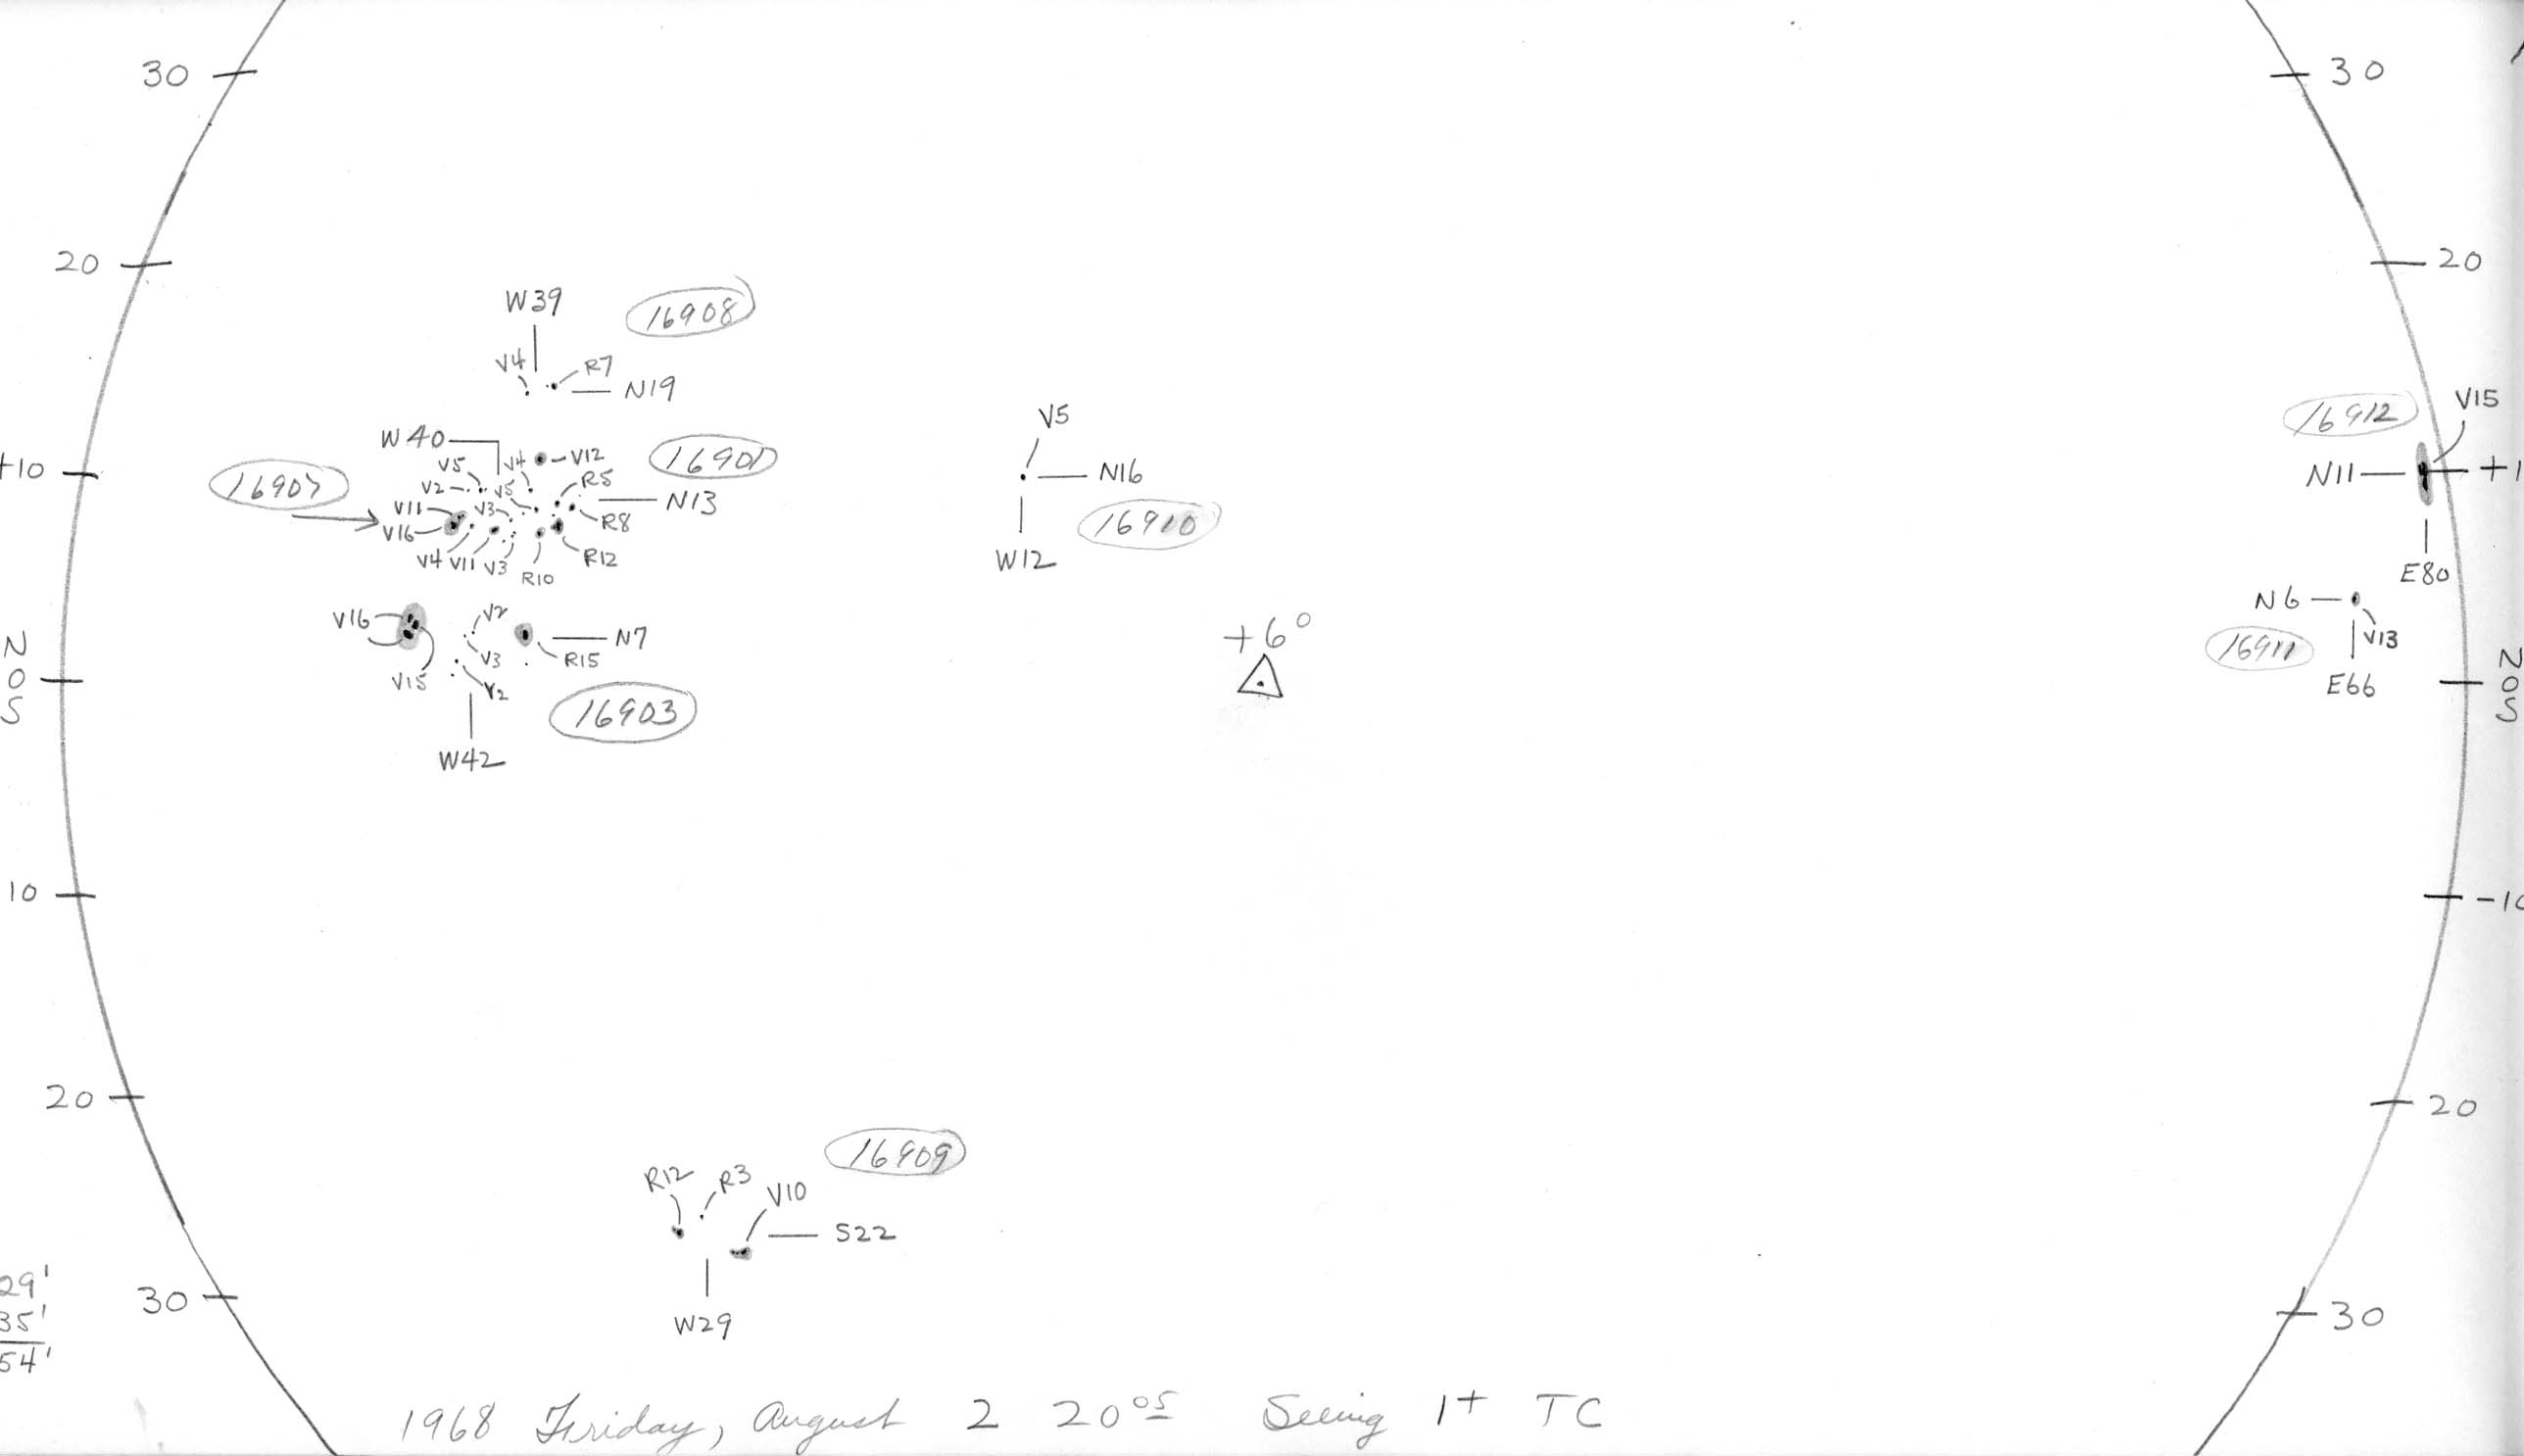 30
30
20
20
W39
16908
V4
R7
N19
V5
16912
V15
W40
V4
V12
16901
+10
V5
R5
N16
N11
+1
16907
V2
V5
N13
V11
V3
R8
16910
V16
V4
V11
V3
R10
R12
W12
E80
N6
V16
V2
N7
+6°
V13
16911
N
O
S
V3
R15
V15
V2
E66
N
O
S
16903
W42
10
-10
20
20
16909
R12
R3
V10
S22
29'
35'
54'
30
W29
30
1968 Friday, August 2 20 05 Seeing 1+ TC